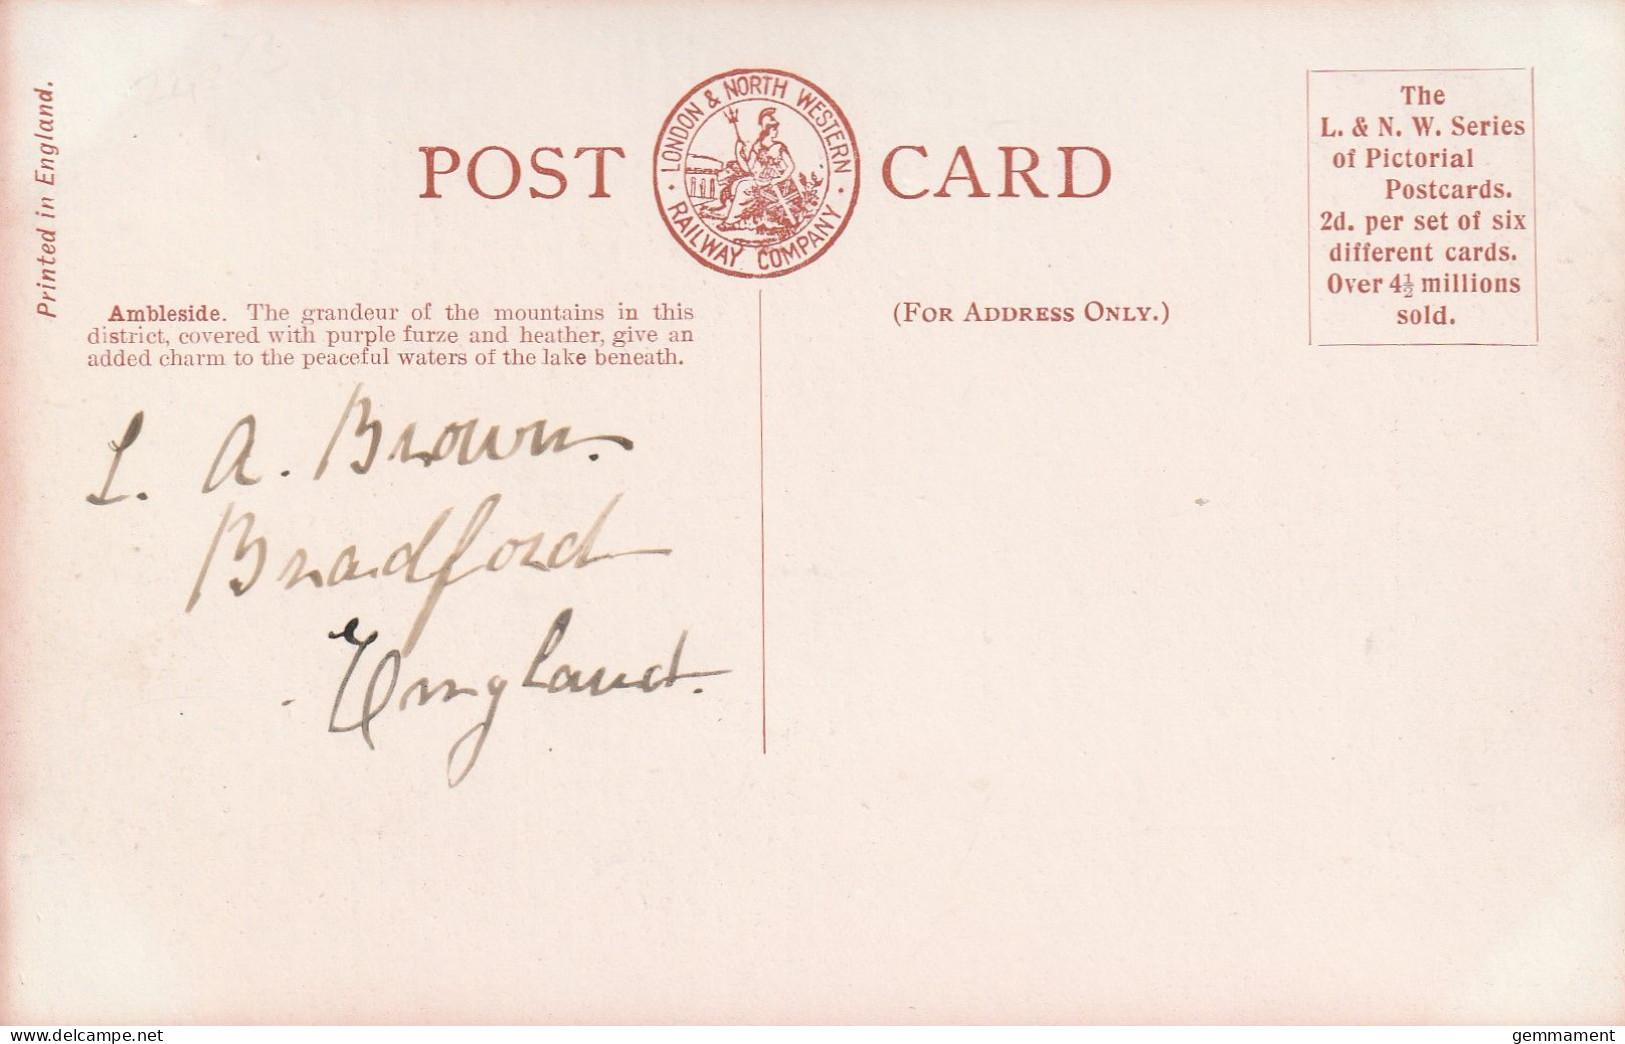 Printed in England.
POST CARD
LONDON & NORTH WESTERN
· RAILWAY COMPANY ·
The
L. & N. W. Series
of Pictorial
Postcards.
2d. per set of six
different cards.
Over 4½ millions
sold.
Ambleside. The grandeur of the mountains in this
district, covered with purple furze and heather, give an
added charm to the peaceful waters of the lake beneath.
(For Address Only.)
L. A. Brown.
Bradford
England.
delcampe.net
gemmament